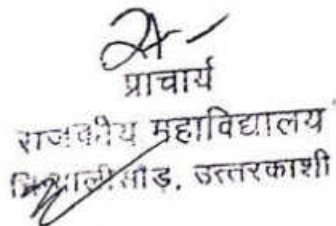 प्राचार्य
राजकीय महाविद्यालय
चिन्यालीसौड़, उत्तरकाशी